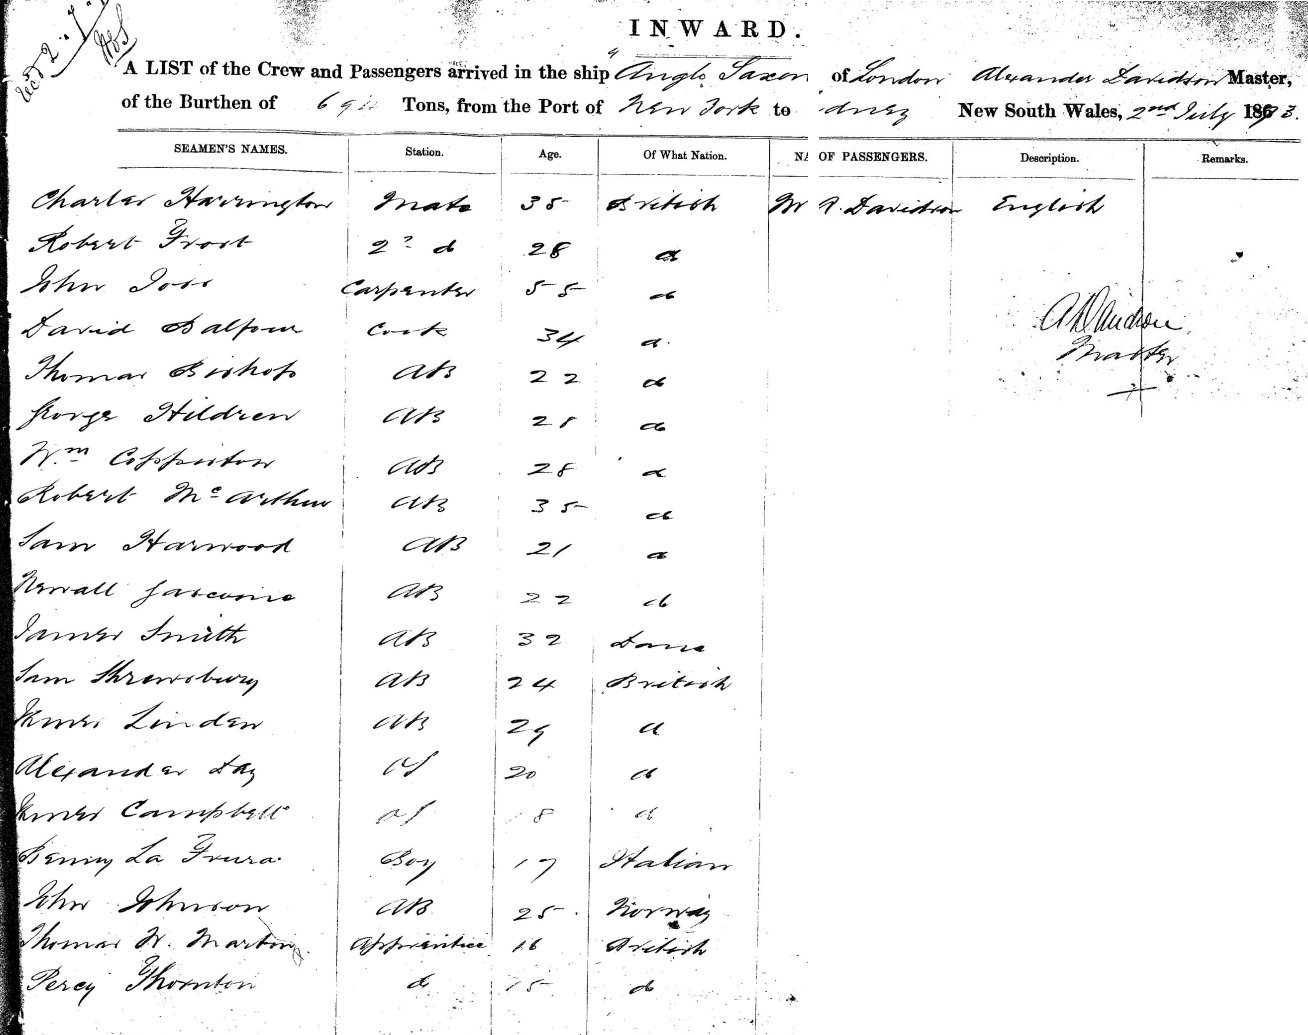 INWARD.
A LIST of the Crew and Passengers arrived in the ship Anglo Saxon of London Alexander Davidson Master,
of the Burthen of Tons, from the Port of New York to dney New South Wales, 2nd July 1873.
SEAMEN'S NAMES. Station. Age. Of What Nation. NA OF PASSENGERS. Description. Remarks.
Charles Harrington Mate 35 British Mr R. Davidson English
Robert Frost 2nd d 28 d
John Ioss Carpenter 55 do
David Balfour Cook 34 d
A Davidson
Master
Thomas Bishop AB 22 do
George Hildren AB 25 do
Wm Coppistow AB 28 d
Robert McArthur AB 35 do
Sam Harwood AB 21 d
Newall Gascoine AB 22 do
James Smith AB 32 Dane
Sam Shrewsbury AB 24 British
James Linden AB 29 d
Alexander Day OS 20 d
James Campbell OS 18 d
Benny La Boy 17 Italian
John Johnson AB 25 Norway
Thomas W. Martin Apprentice 16 British
Percy Thornton do 15 do